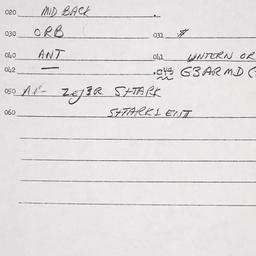 020 MID BACK
030 ORB 031 #
040 ANT 041 UNTERN OR
042 — 043 G3ARMD
050 SHARK
060 SHARK1 ENT